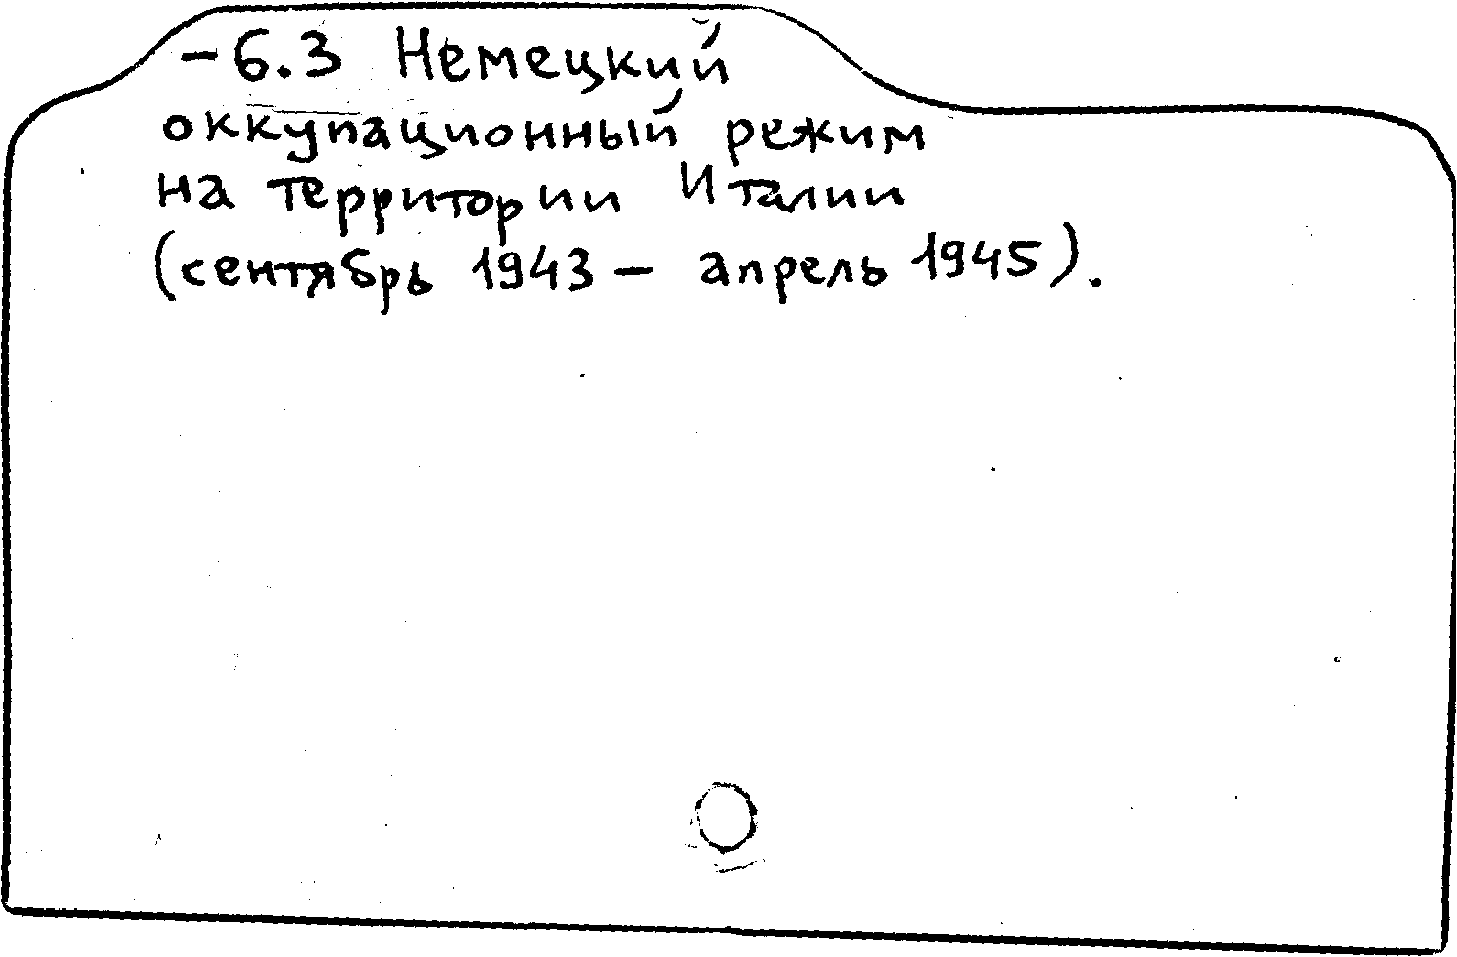 -6.3 Немецкий
оккупационный режим
на территории Италии
(сентябрь 1943 - апрель 1945).